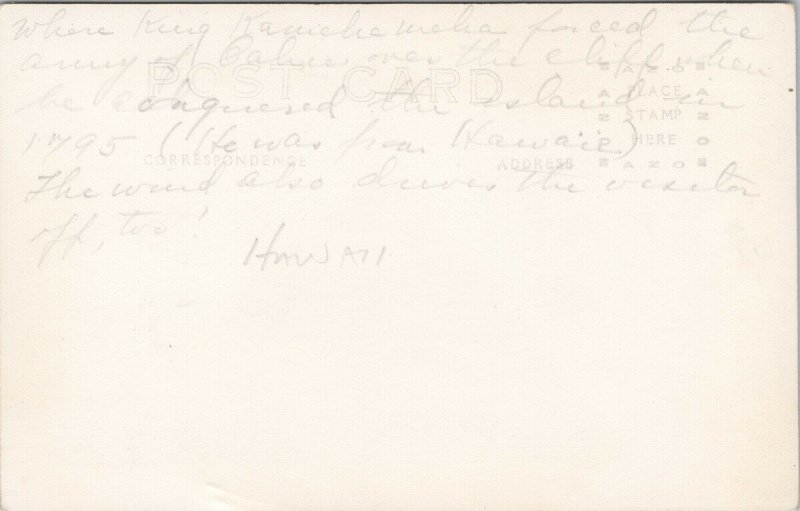 Where King Kamehameha forced the
army of Oahu over the cliff when
POST CARD
he conquered the island in
1795 (He was from Hawaii)
CORRESPONDENCE
ADDRESS
AZO
PLACE
STAMP
HERE
AZO
The wind also drives the visitor
off, too!
HAWAII